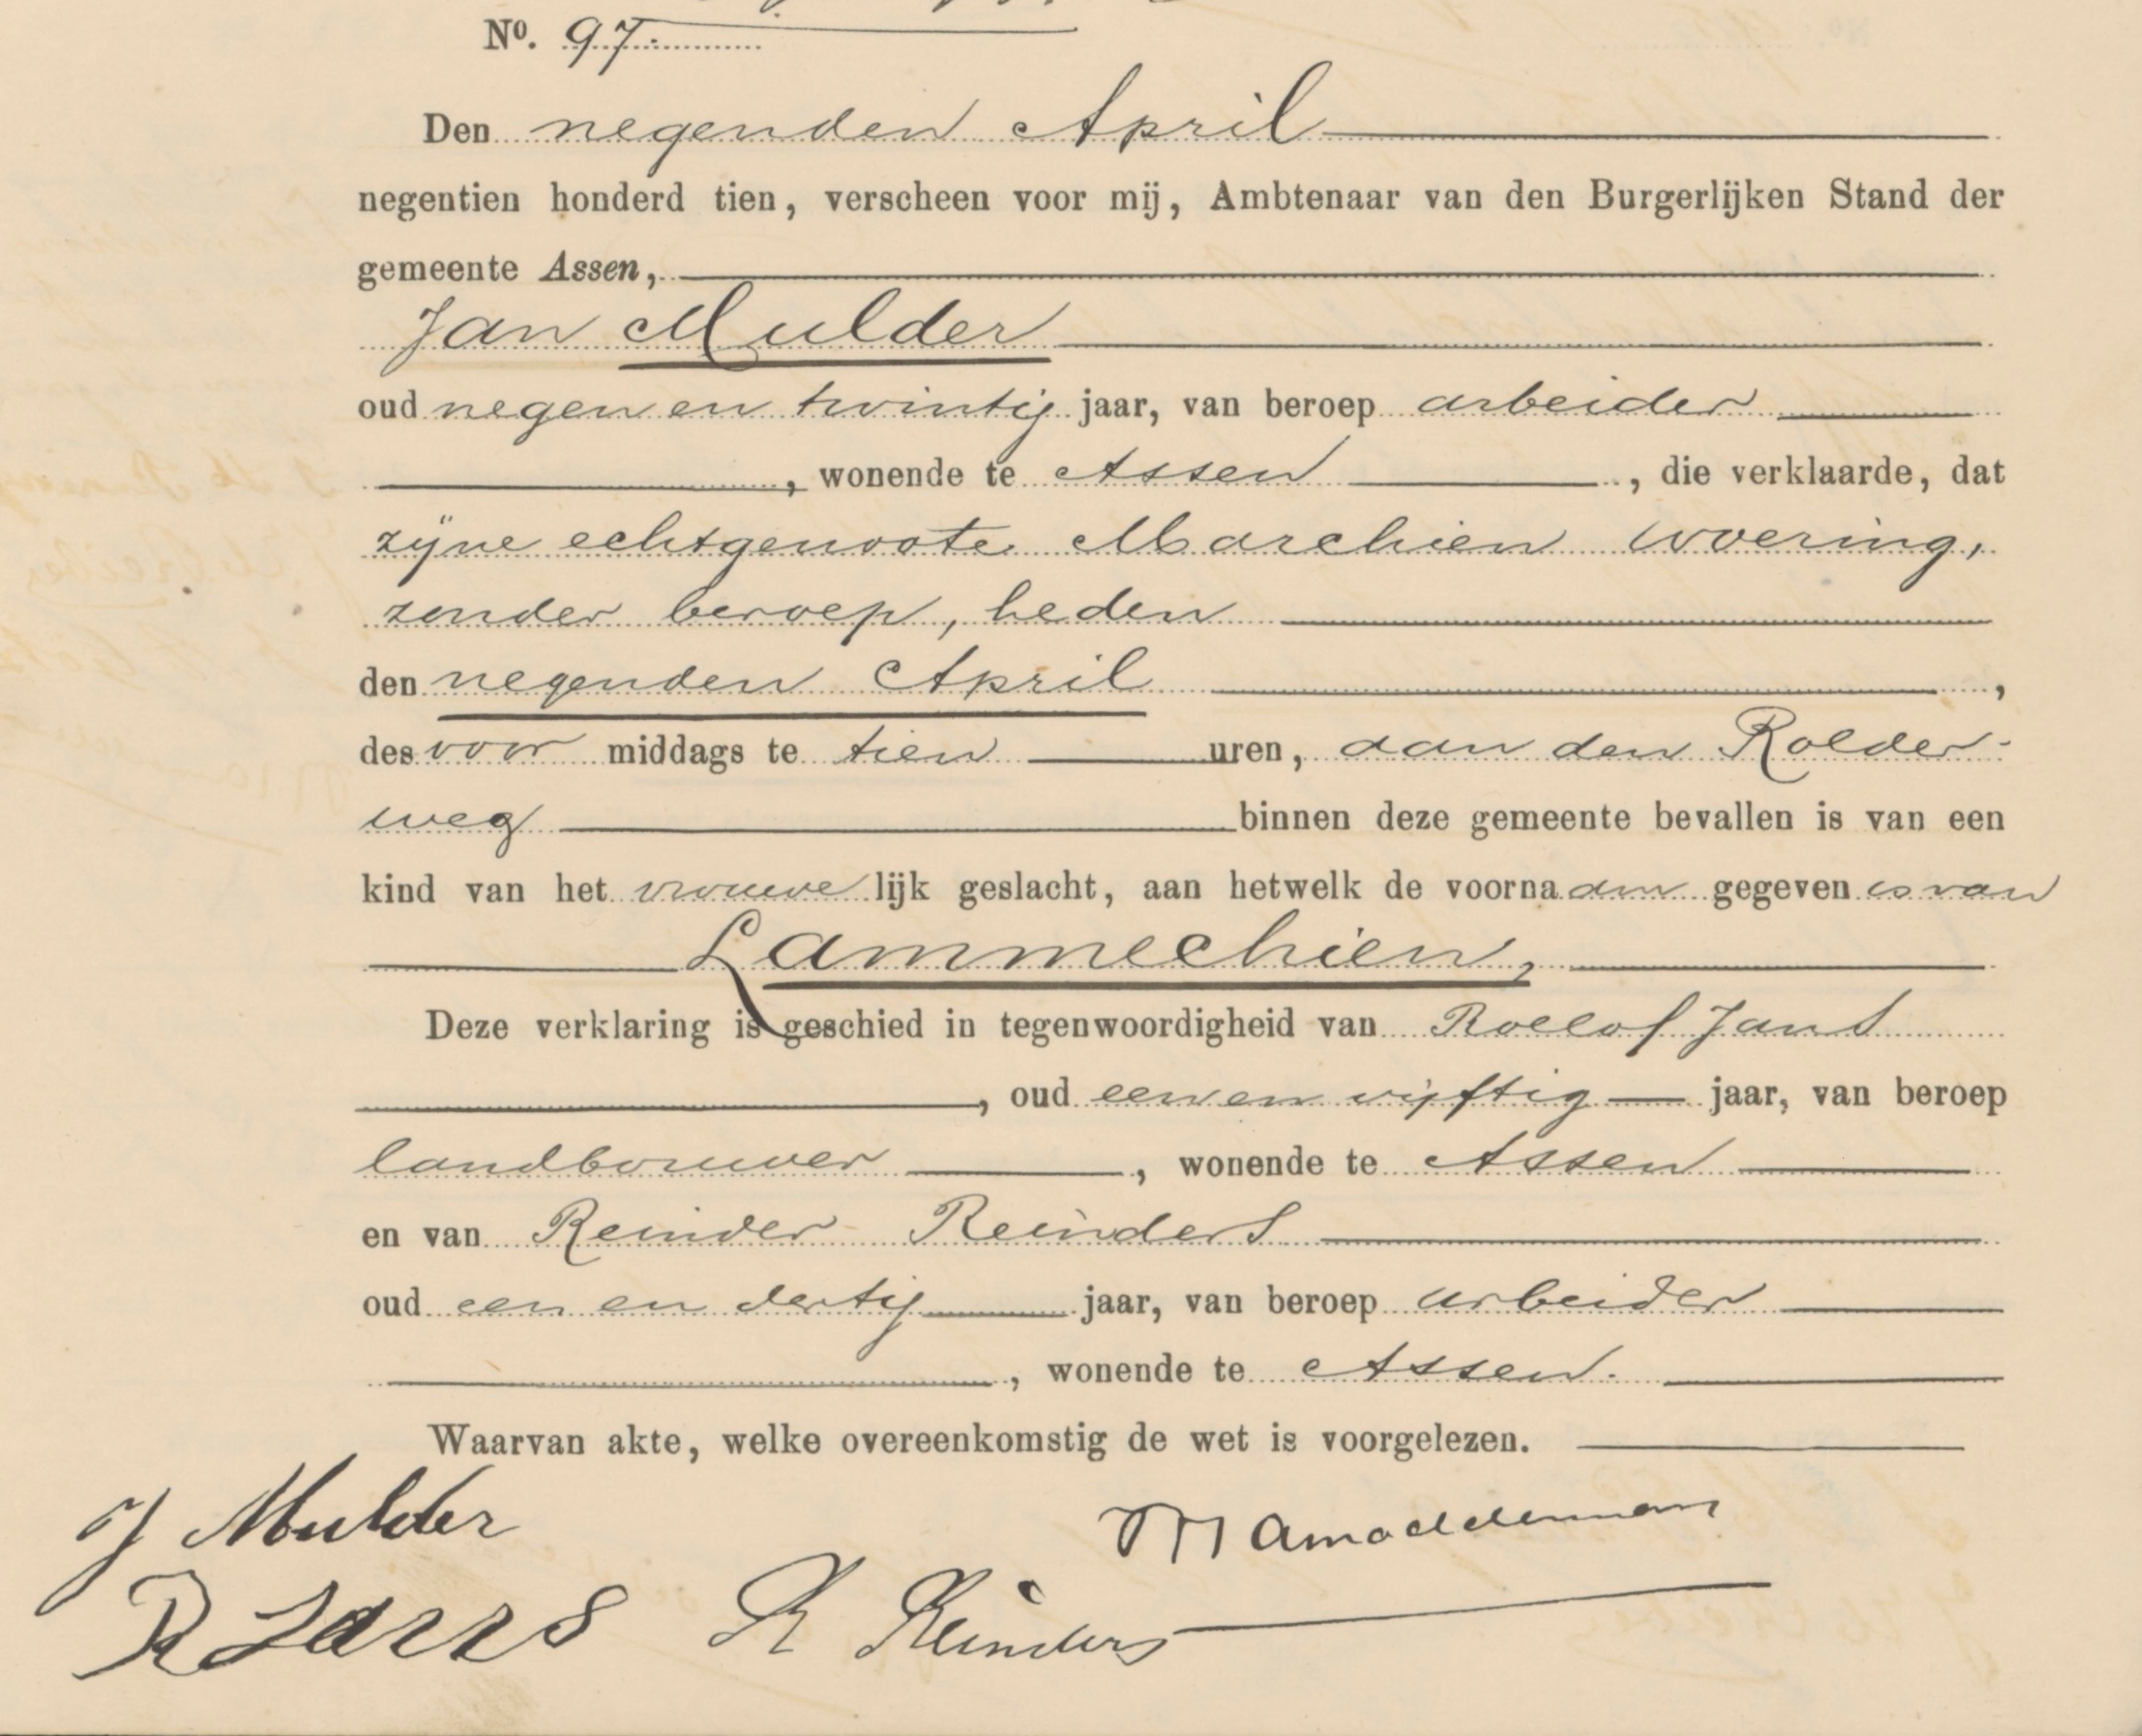 No. 97
Den negenden April
negentien honderd tien, verscheen voor mij, Ambtenaar van den Burgerlijken Stand der
gemeente Assen,
Jan Mulder
oud negen en twintig jaar, van beroep arbeider
, wonende te Assen, die verklaarde, dat
zijne echtgenoote Marchien Woering,
zonder beroep, heden
den negenden April,
des voor middags te tien uren, aan den Rolder-
weg binnen deze gemeente bevallen is van een
kind van het vrouwelijk geslacht, aan hetwelk de voornaam gegeven is van
Lammechien,
Deze verklaring is geschied in tegenwoordigheid van Roelof Jans
, oud een en vijftig jaar, van beroep
landbouwer, wonende te Assen
en van Reinder Reinders
oud een en dertig jaar, van beroep arbeider
, wonende te Assen.
Waarvan akte, welke overeenkomstig de wet is voorgelezen.
J Mulder
R Jans R Reinders